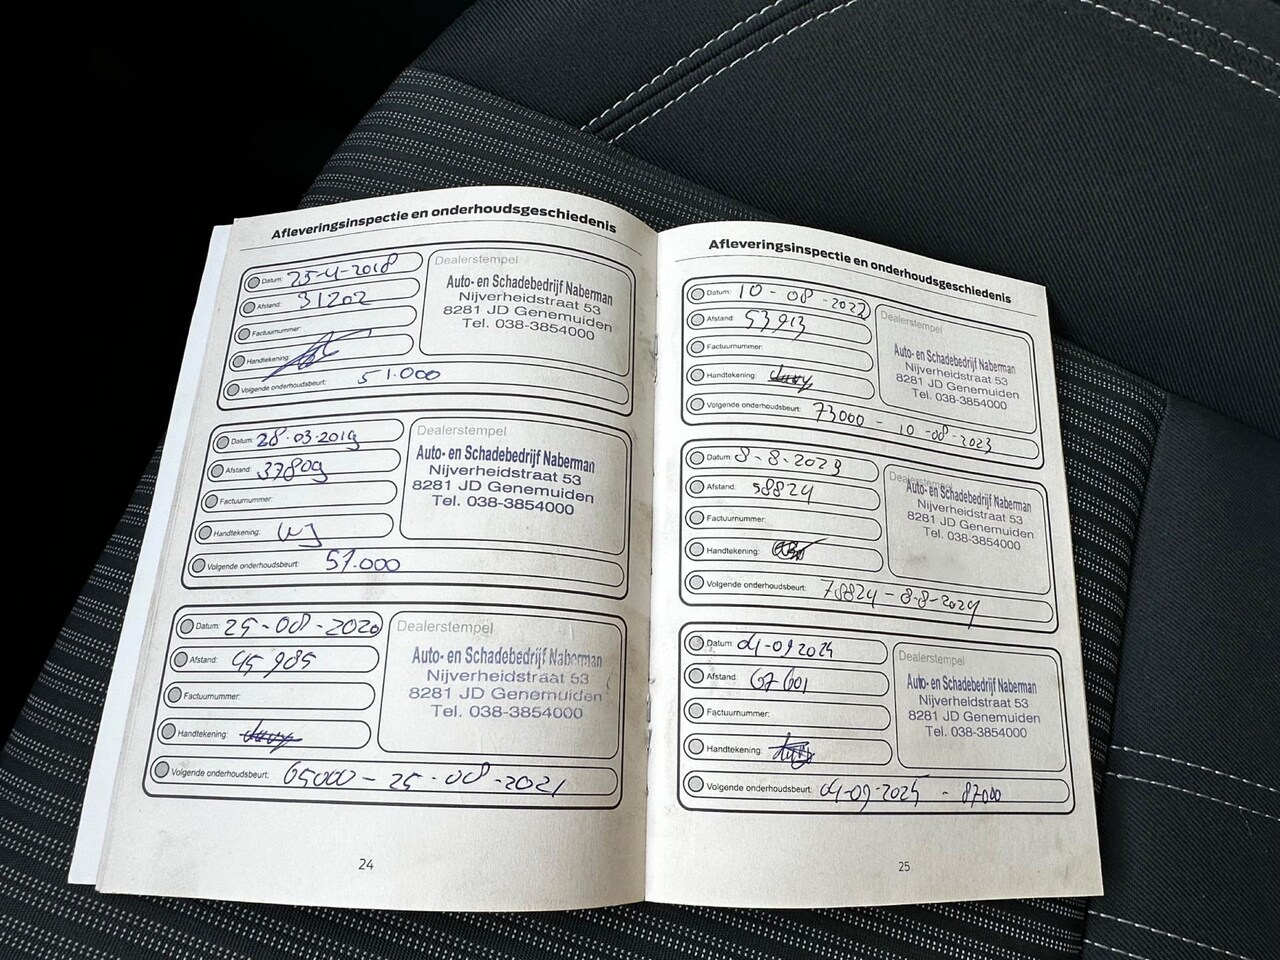 Afleveringsinspectie en onderhoudsgeschiedenis
Datum: 25-4-2018
Afstand: 31202
Factuurnummer:
Handtekening:
Volgende onderhoudsbeurt: 51.000
Dealerstempel
Auto- en Schadebedrijf Naberman
Nijverheidstraat 53
8281 JD Genemuiden
Tel. 038-3854000
Datum: 28-03-2019
Afstand: 37809
Factuurnummer:
Handtekening:
Volgende onderhoudsbeurt: 57.000
Dealerstempel
Auto- en Schadebedrijf Naberman
Nijverheidstraat 53
8281 JD Genemuiden
Tel. 038-3854000
Datum: 25-08-2020
Afstand: 45985
Factuurnummer:
Handtekening:
Volgende onderhoudsbeurt: 65000 - 25-08-2021
Dealerstempel
Auto- en Schadebedrijf Naberman
Nijverheidstraat 53
8281 JD Genemuiden
Tel. 038-3854000
24
Afleveringsinspectie en onderhoudsgeschiedenis
Datum: 10-08-2022
Afstand: 53913
Factuurnummer:
Handtekening:
Volgende onderhoudsbeurt: 73000 - 10-08-2023
Dealerstempel
Auto- en Schadebedrijf Naberman
Nijverheidstraat 53
8281 JD Genemuiden
Tel. 038-3854000
Datum: 8-8-2023
Afstand: 58824
Factuurnummer:
Handtekening:
Volgende onderhoudsbeurt: 78824 - 8-8-2024
Dealerstempel
Auto- en Schadebedrijf Naberman
Nijverheidstraat 53
8281 JD Genemuiden
Tel. 038-3854000
Datum: 04-09 2024
Afstand: 67601
Factuurnummer:
Handtekening:
Volgende onderhoudsbeurt: 04-09-2025 - 87000
Dealerstempel
Auto- en Schadebedrijf Naberman
Nijverheidstraat 53
8281 JD Genemuiden
Tel. 038-3854000
25